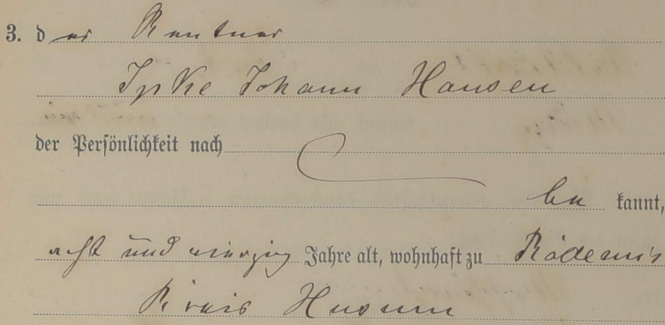 3. der Rentner
Ipke Johann Hansen
der Persönlichkeit nach
be kannt,
acht und vierzig Jahre alt, wohnhaft zu Rödemis
Kreis Husum